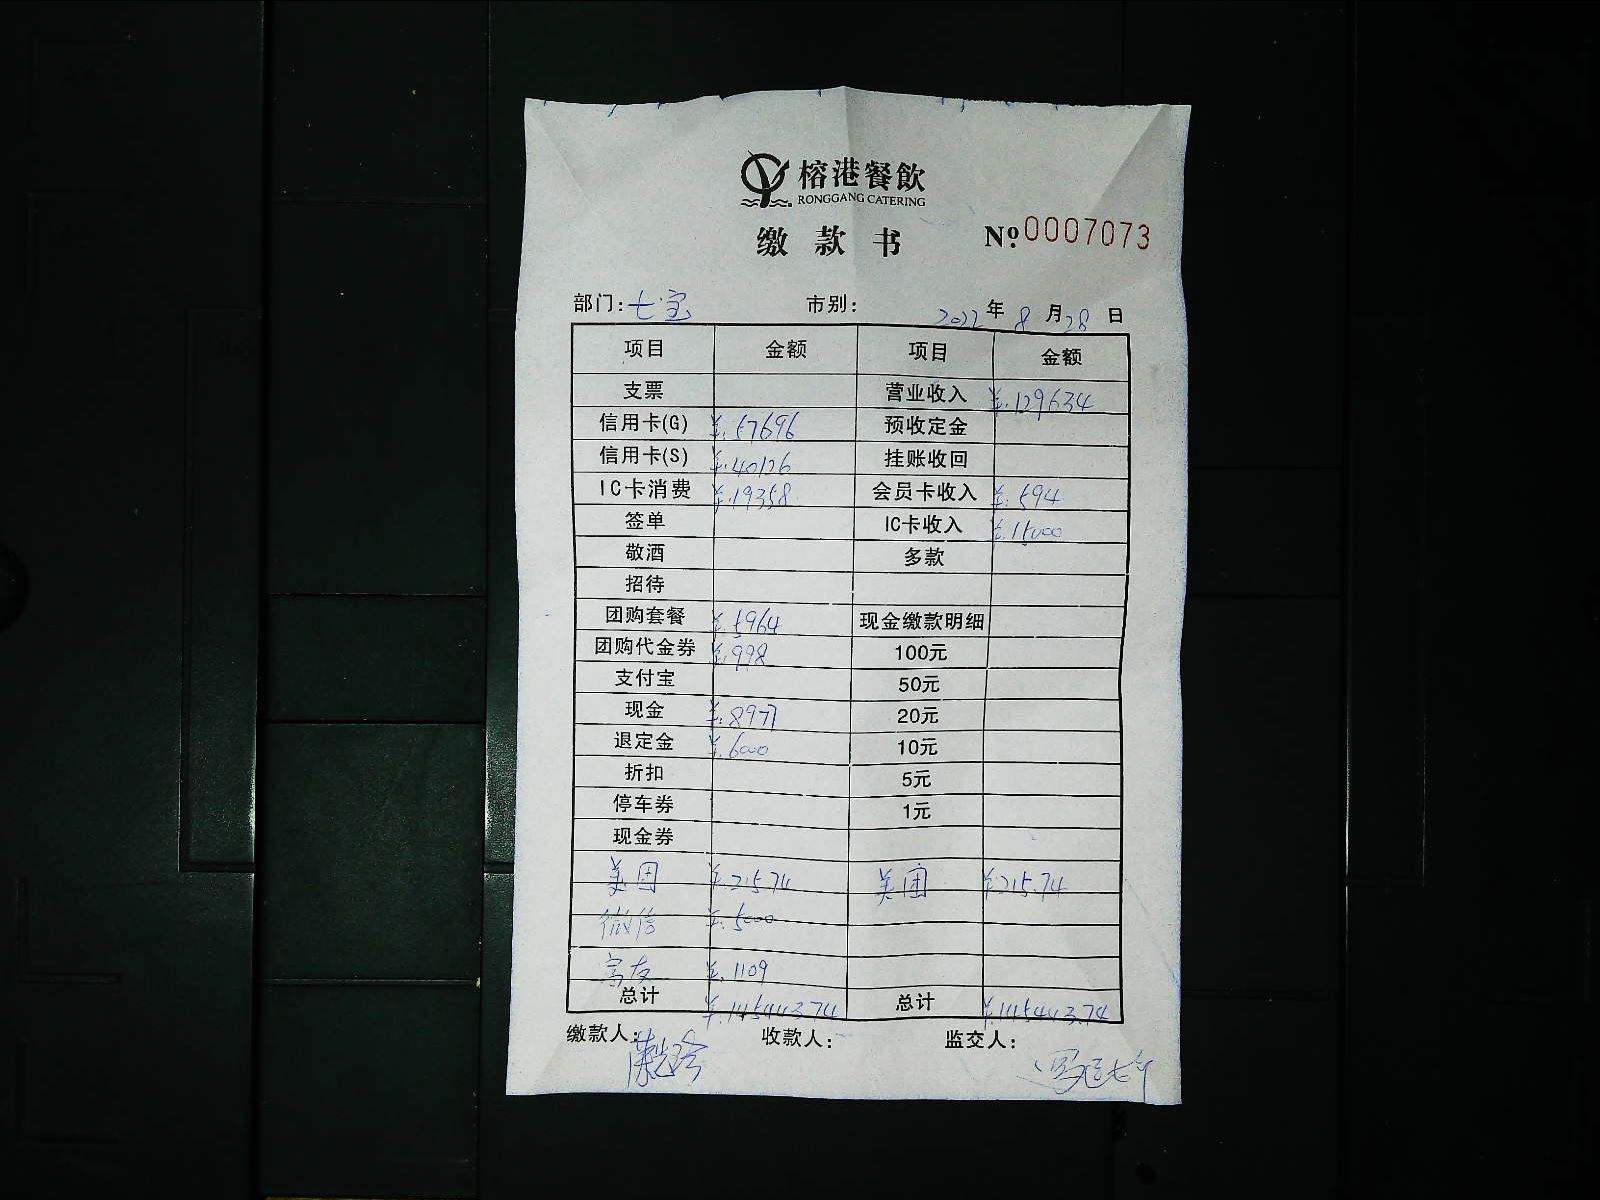 榕港餐飲
RONGGANG CATERING
缴款书 Nº 0007073
部门: 七宝 市别: 2022 年 8 月 28 日
项目 金额 项目 金额
支票 营业收入 ¥.129634
信用卡(G) ¥.57696 预收定金
信用卡(S) ¥.40126 挂账收回
IC卡消费 ¥.19358 会员卡收入 ¥.594
签单 IC卡收入 ¥.15000
敬酒 多款
招待
团购套餐 ¥.5964 现金缴款明细
团购代金券 ¥.998 100元
支付宝 50元
现金 ¥.8977 20元
退定金 ¥.6000 10元
折扣 5元
停车券 1元
现金券
美团 ¥.215.74 美团 ¥.215.74
微信 ¥.5000
¥.1109
总计 ¥.145443.74 总计 ¥.145443.74
缴款人: 收款人: 监交人: